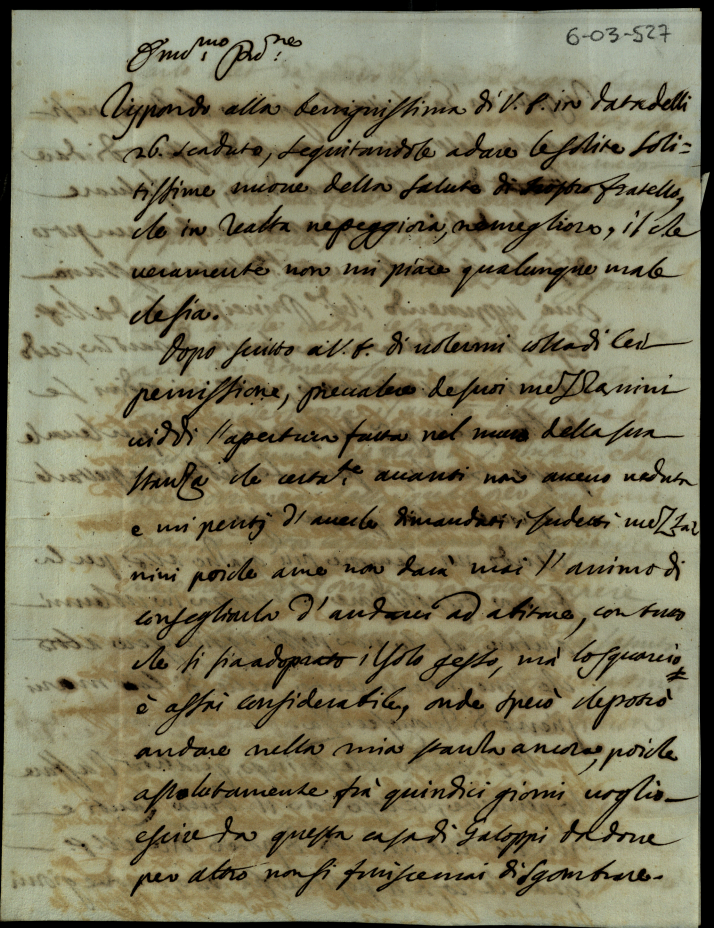 6-03-527
Em.mo Pad.ne
Rispondo alla benignissima di V. E. in data delli
26. scaduto, seguitandole a dare le solite soli=
tissime nuove della salute di nostro fratello,
che in realtà ne peggiora, ne megliora, il che
veramente non mi piace qualunque male
che sia.
Dopo scritto a V. E. di volermi colla di Lei
permissione, prevalere de suoi mezzanini
viddi l'apertura fatta nel muro della sua
stanza che certam.te avanti non avevo veduta
e mi pentij d'averle dimandati i sudetti mezza=
nini poiche a me non darà mai l'animo di
consegliarla d'andarci ad abitare, con tutto
che si sia adoprato il solo gesso, mà lo squarcio
è assai considerabile, onde spero che potrò
andare nella mia stanza ancora, poiche
assolutamente frà quindici giorni voglio
escire da questa casa di Galoppi da dove
per altro non si finisce mai di sgombrare.